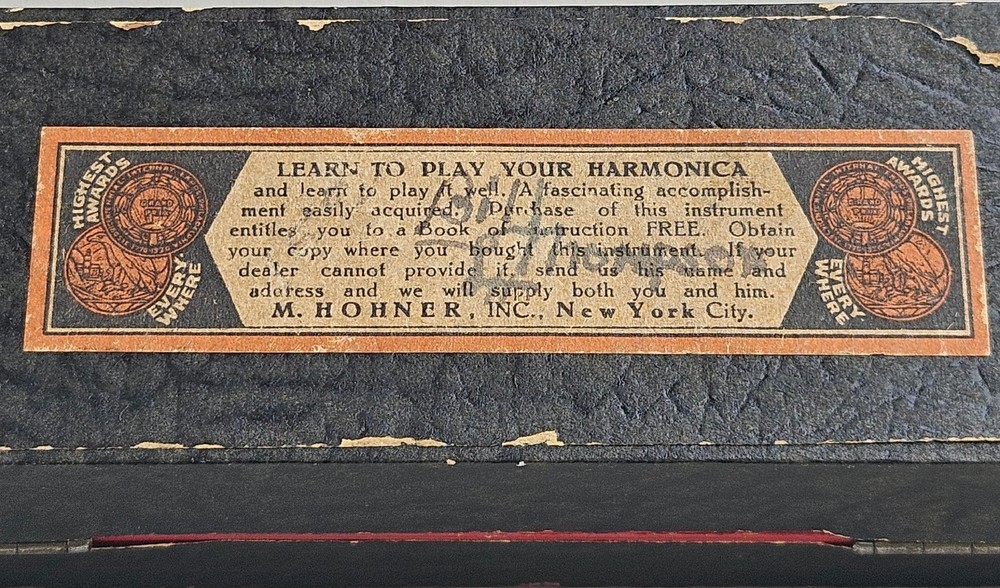 HIGHEST
AWARDS
GRAND
PRIX
EVERY
WHERE
LEARN TO PLAY YOUR HARMONICA
and learn to play it well. A fascinating accomplish-
ment easily acquired. Purchase of this instrument
entitles you to a Book of Instruction FREE. Obtain
your copy where you bought this instrument. If your
dealer cannot provide it, send us his name and
address and we will supply both you and him.
M. HOHNER, INC., New York City.
HIGHEST
AWARDS
GRAND
PRIX
EVERY
WHERE